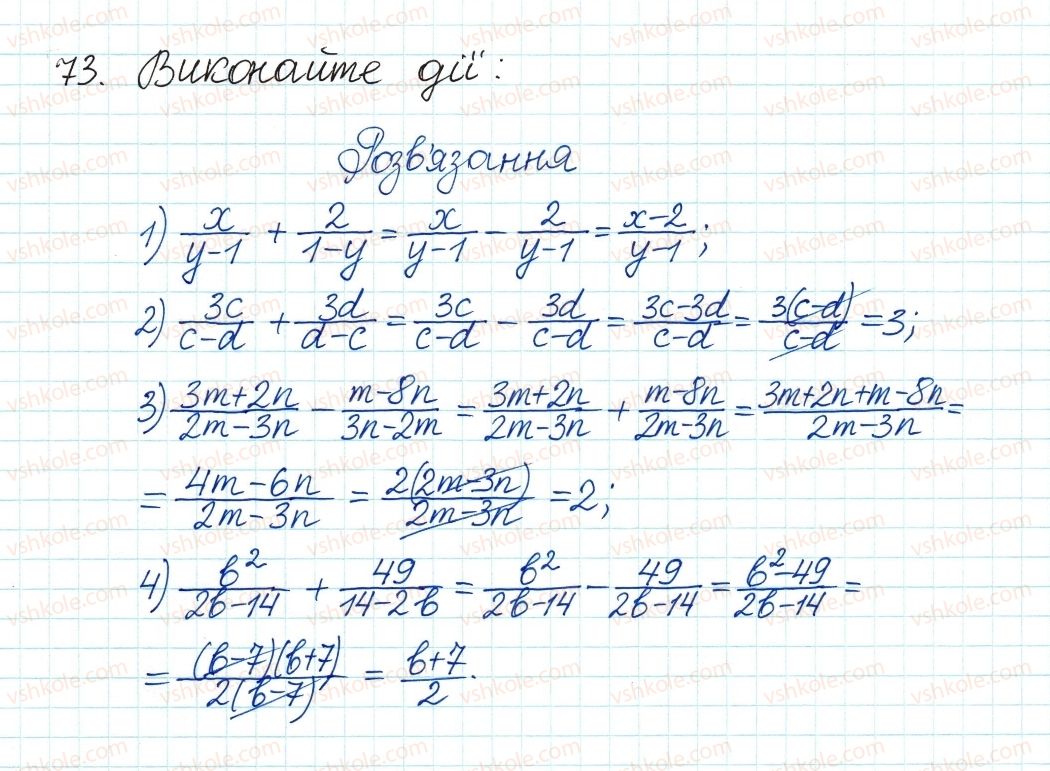 73. Виконайте дії:
Розв'язання
1) x/(y-1) + 2/(1-y) = x/(y-1) - 2/(y-1) = (x-2)/(y-1);
2) 3c/(c-d) + 3d/(d-c) = 3c/(c-d) - 3d/(c-d) = (3c-3d)/(c-d) = 3(c-d)/(c-d) = 3;
3) (3m+2n)/(2m-3n) - (m-8n)/(3n-2m) = (3m+2n)/(2m-3n) + (m-8n)/(2m-3n) = (3m+2n+m-8n)/(2m-3n) =
= (4m-6n)/(2m-3n) = 2(2m-3n)/(2m-3n) = 2;
4) в²/(2в-14) + 49/(14-2в) = в²/(2в-14) - 49/(2в-14) = (в²-49)/(2в-14) =
= (в-7)(в+7)/2(в-7) = (в+7)/2.
vshkole.com